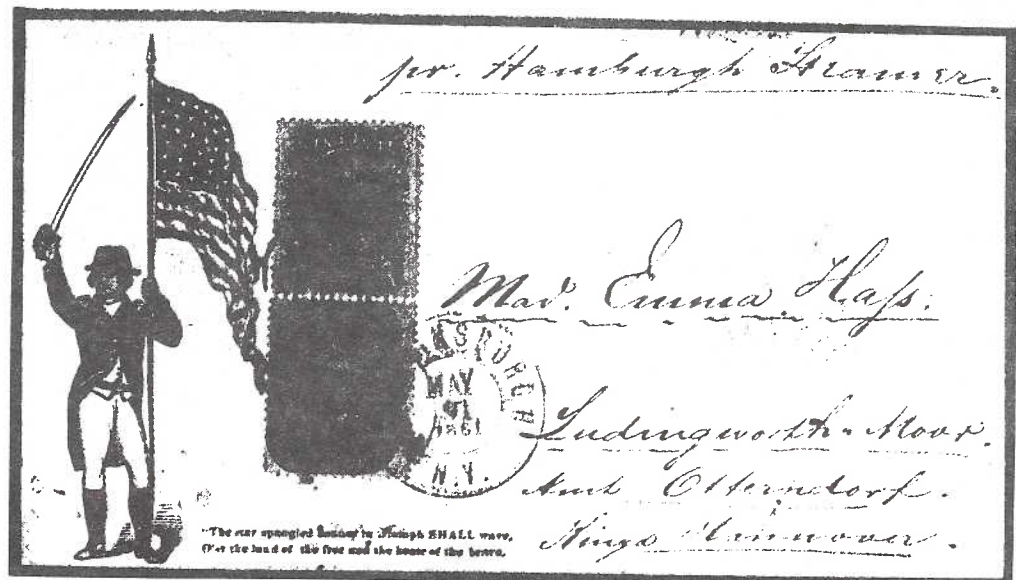 pr. Hamburgh Steamer.
Mad. Emma Haſs.
MAY
1861
N.Y.
Ludingworth-Moor.
Amt Otterndorf.
Kingd Hannover.
"The star spangled banner in triumph SHALL wave,
O'er the land of the free and the home of the brave.